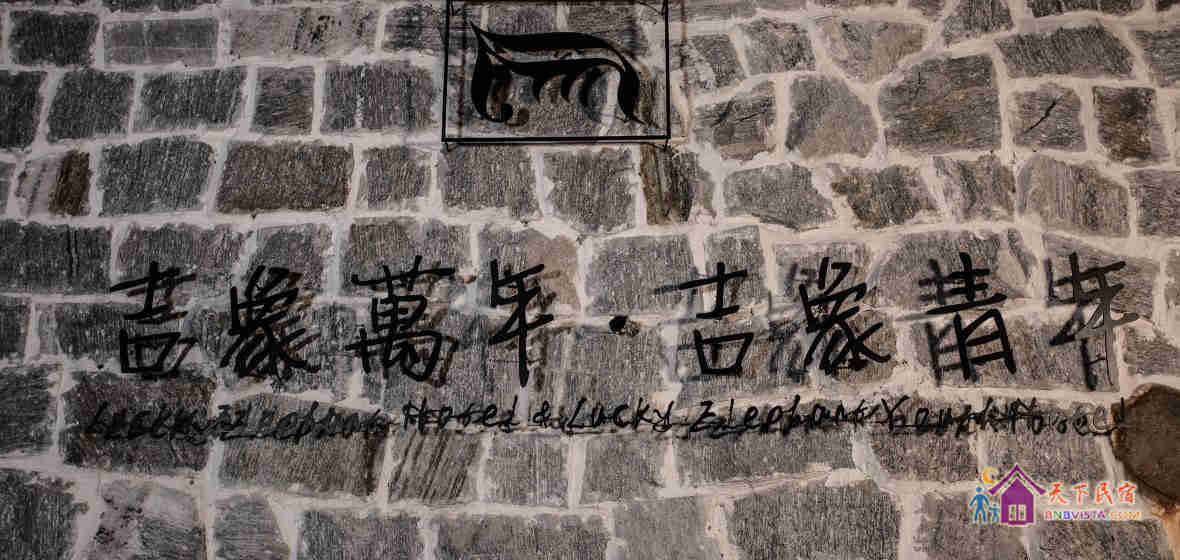 吉象萬年·吉象青年
Lucky Elephant Hotel & Lucky Elephant Youth Hotel
天下民宿
BNBVISTA.COM